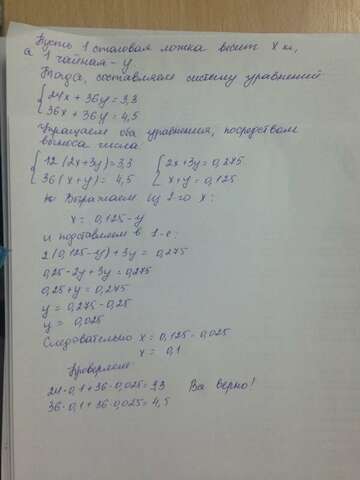 Пусть 1 столовая ложка весит x кг,
а 1 чайная - y
Тогда, составляем систему уравнений
24x + 36y = 3,3
36x + 36y = 4,5
Упрощаем оба уравнения, посредством
выноса числа
12 (2x+3y) = 3,3 2x+3y = 0,275
36 (x+y) = 4,5 x+y = 0,125
Выражаем из 2-го x:
x = 0,125 - y
и подставляем в 1-е:
2(0,125-y) + 3y = 0,275
0,25 - 2y + 3y = 0,275
0,25 + y = 0,275
y = 0,275 - 0,25
y = 0,025
Следовательно x = 0,125 - 0,025
x = 0,1
Проверяем:
24·0,1 + 36·0,025 = 3,3 Все верно!
36·0,1 + 36·0,025 = 4,5